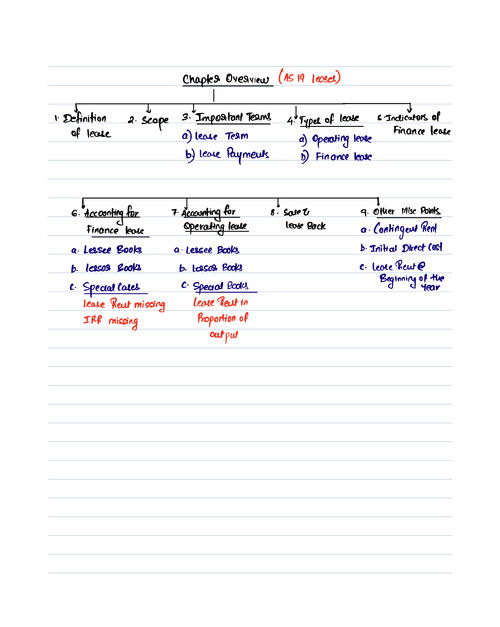 Chapter Overview (AS 19 leases)
1. Definition of lease
2. Scope
3. Important Terms
a) lease Term
b) lease Payments
4. Types of lease
a) Operating lease
b) Finance lease
5. Indicators of
Finance lease
6. Accounting for
Finance lease
a. Lessee Books
b. Lessor Books
c. Special Cases
Lease Rent missing
IRR missing
7. Accounting for
Operating lease
a. Lessee Books
b. Lessor Books
c. Special Books
Lease Rent in
Proportion of
output
8. Sale &
lease Back
9. Other Misc Points
a. Contingent Rent
b. Initial Direct Cost
c. Lease Rent @
Beginning of the
year